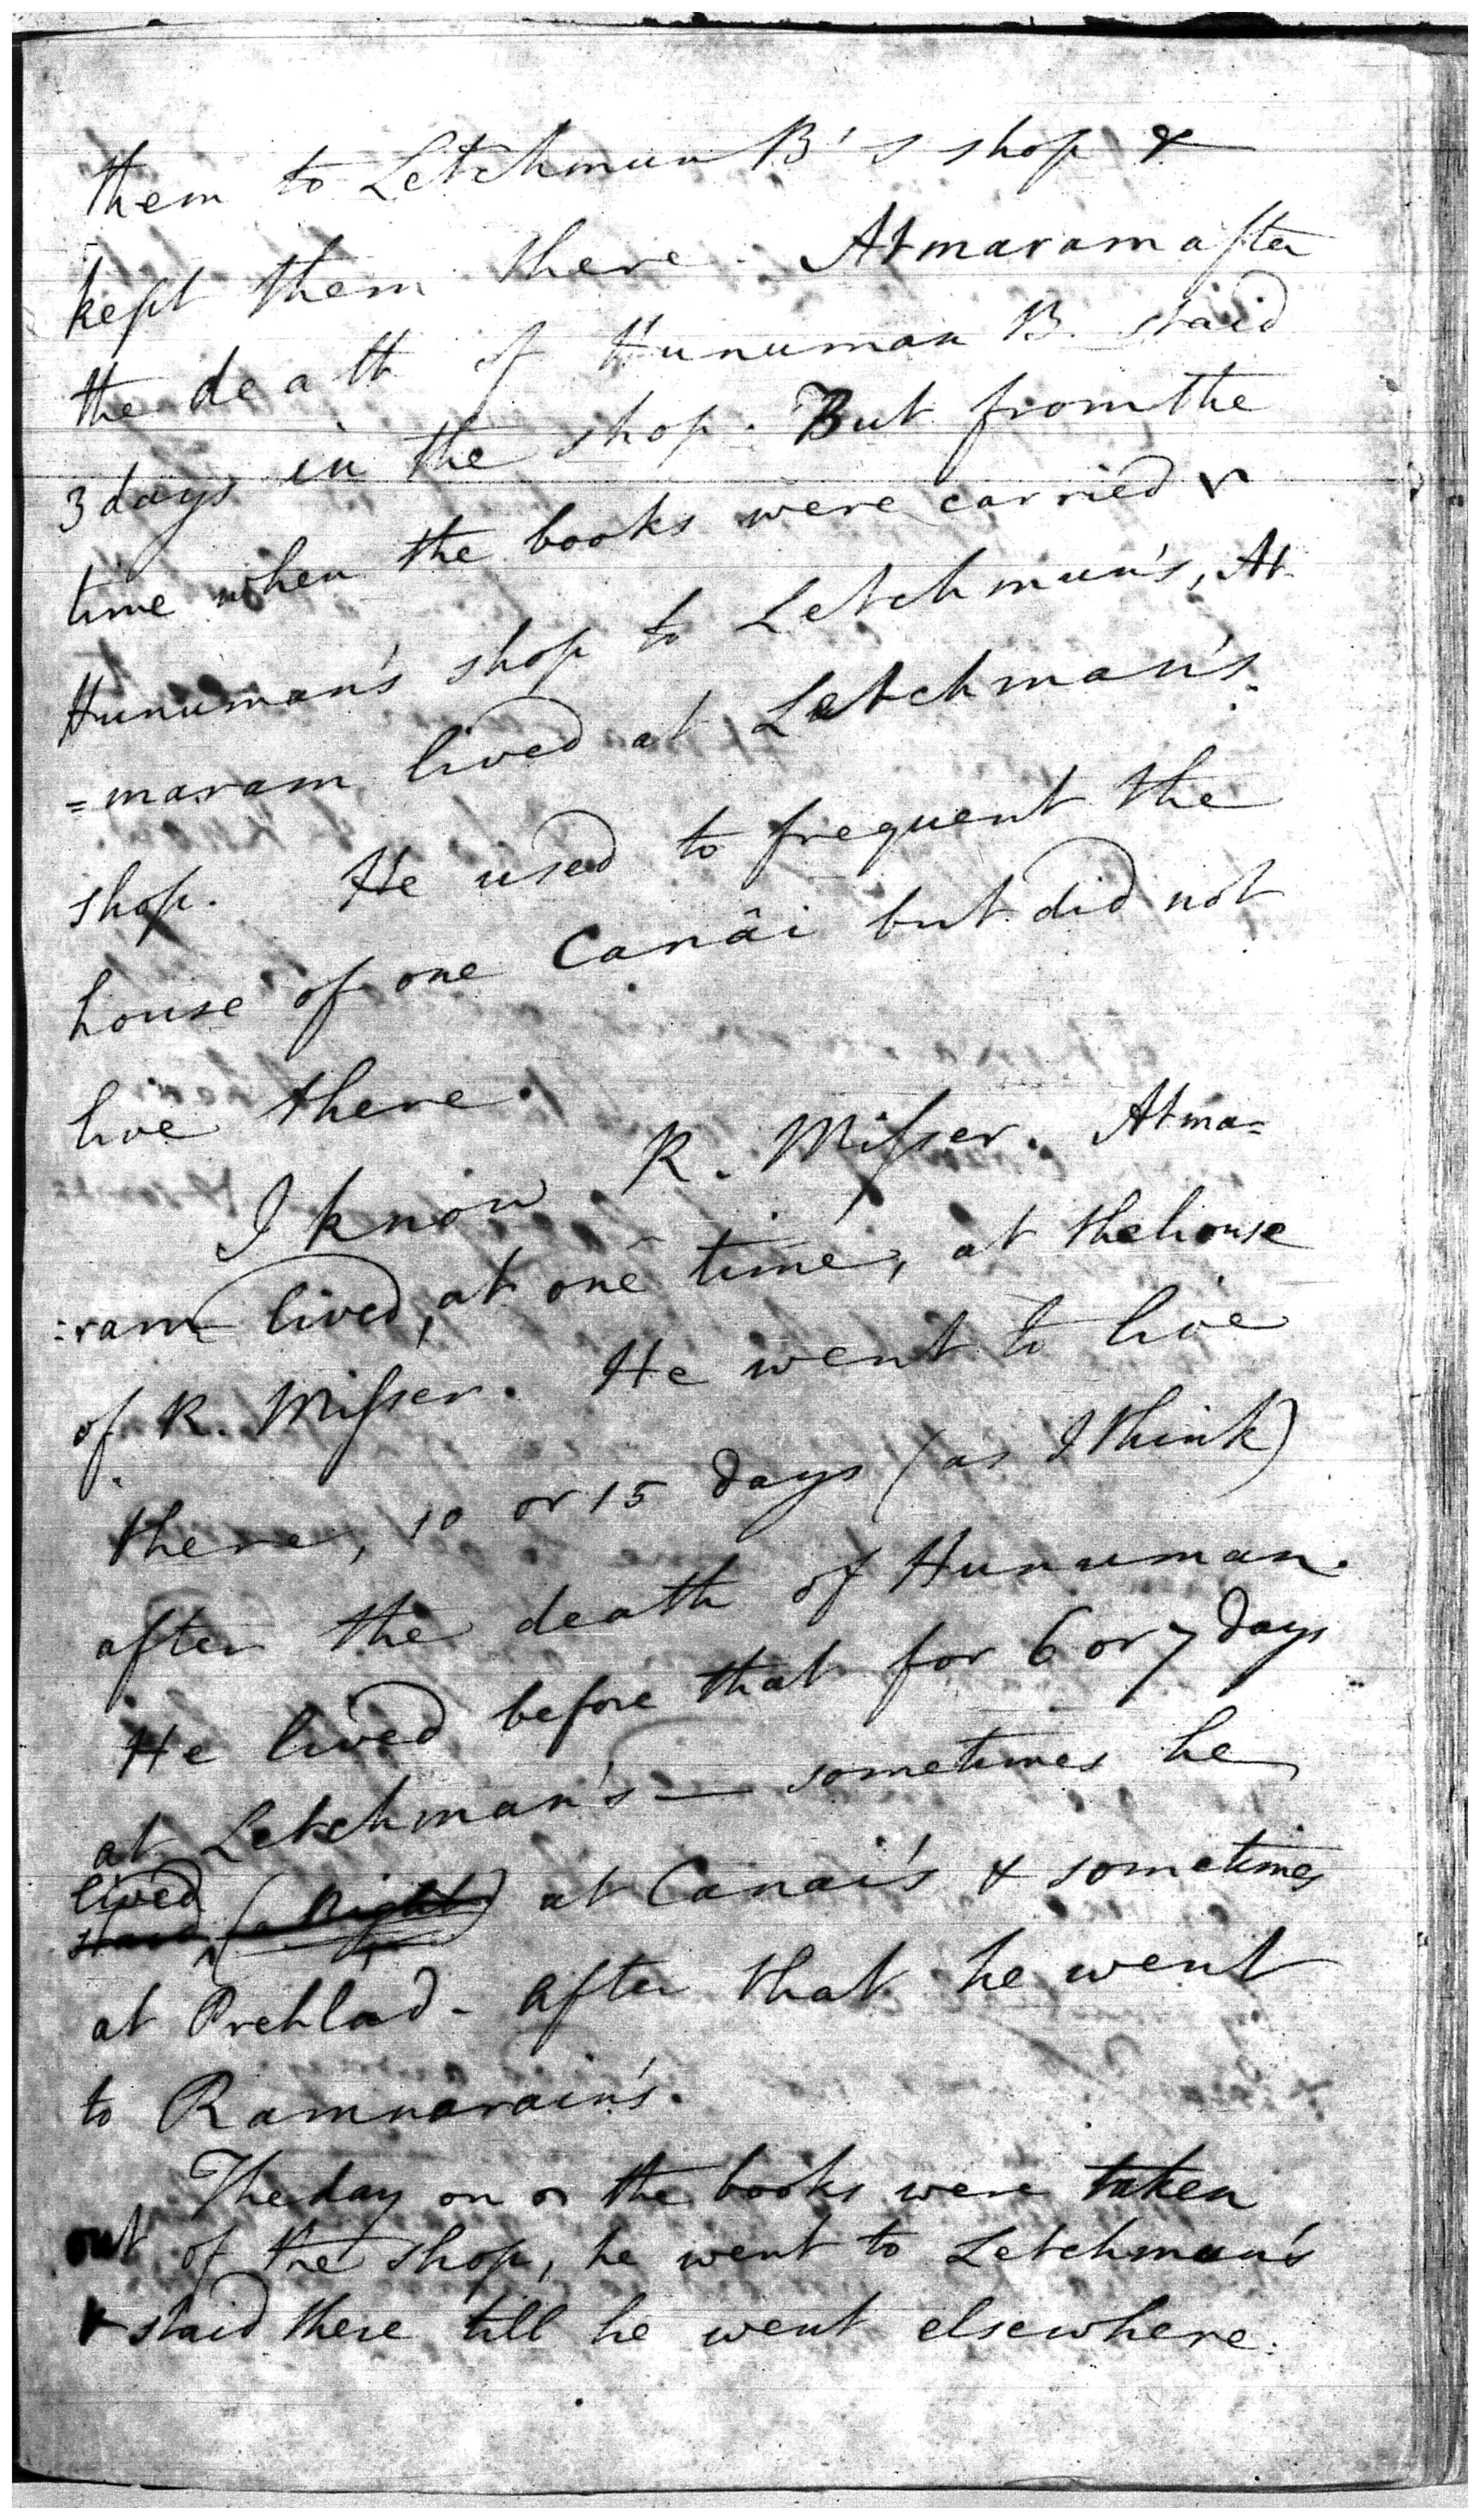 them to Letchmun B's shop &
kept them there. Atmaram after
the death of Hunuman B. staid
3 days in the shop. But from the
time when the books were carried
Hunuman's shop to Letchmun's, At
=maram lived at Letchman's
shop. He used to frequent the
house of one Canâi but did not
live there.
I know R. Misser. Atma=
=ram lived, at one time, at the house
of R. Misser. He went to live
there, 10 or 15 days (as I think)
after the death of Hunuman.
He lived before that for 6 or 7 days
at Letchman's — sometimes he
lived
staid (a Night) at Canai's & sometimes
at Prehlad - After that he went
to Ramnarain's.
The day on the books were taken
out of the shop, he went to Letchman's
& staid there till he went elsewhere.